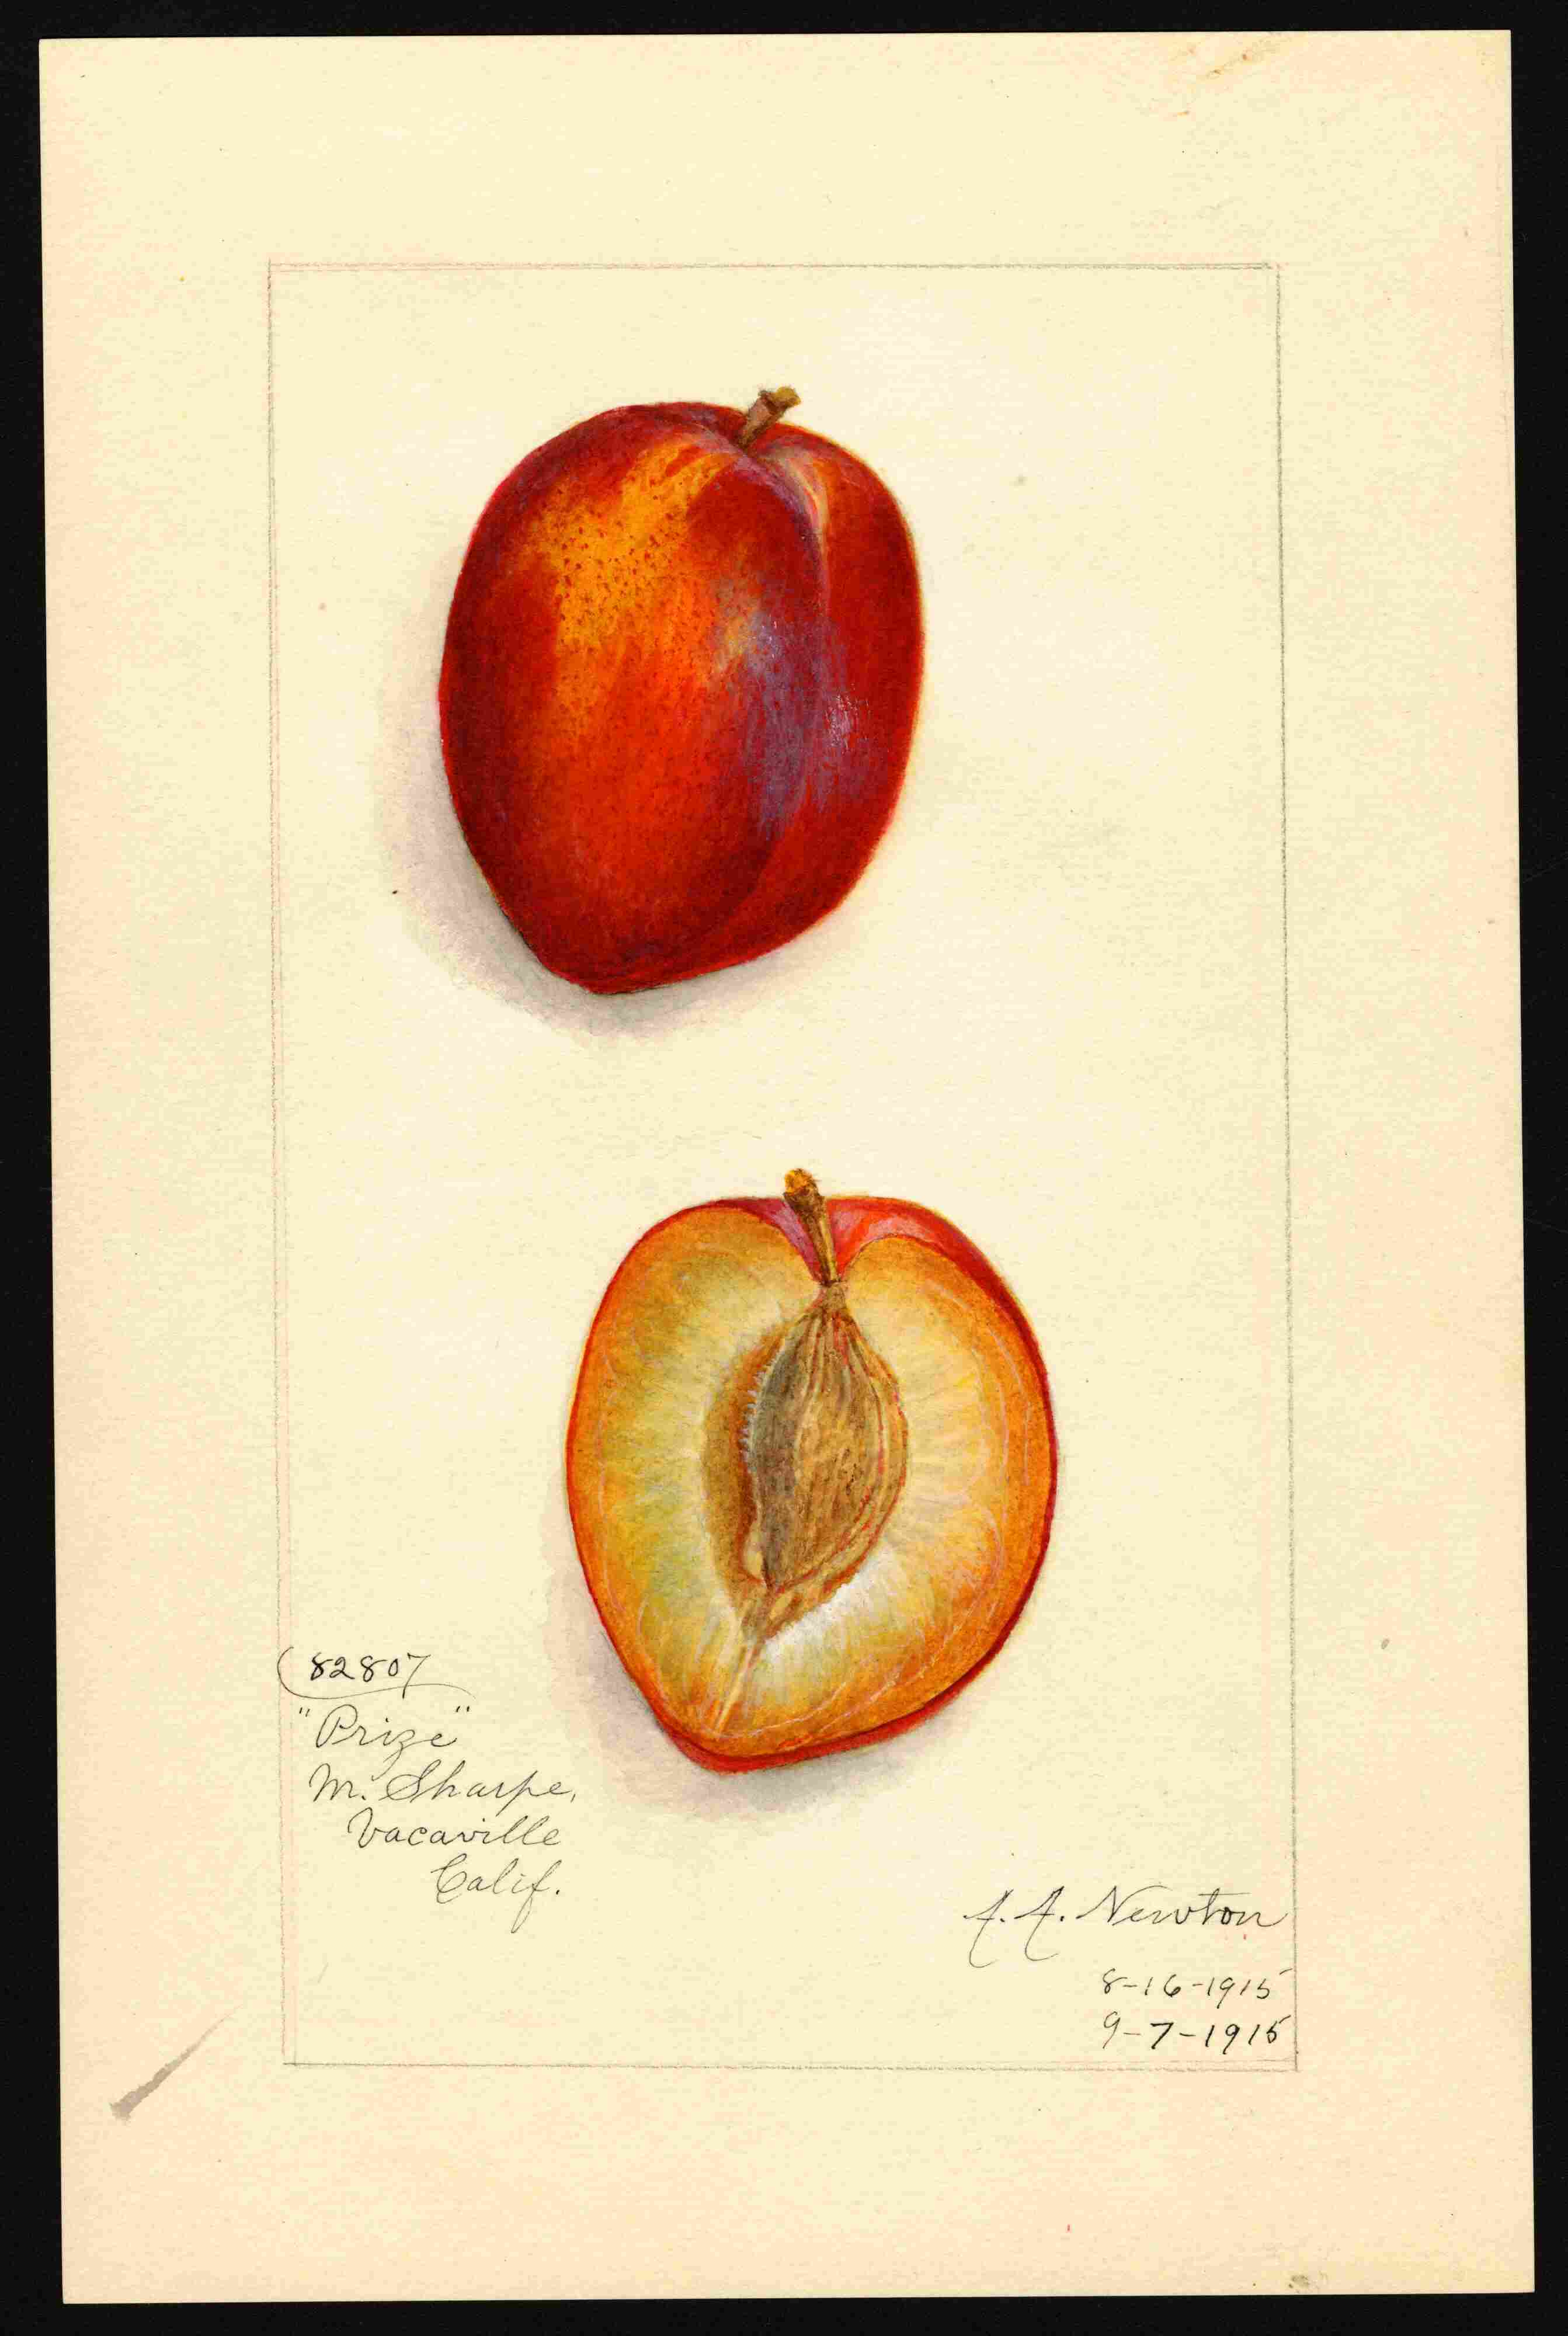 82807
"Prize"
M. Sharpe,
Vacaville
Calif.
A. A. Newton
8-16-1915
9-7-1915